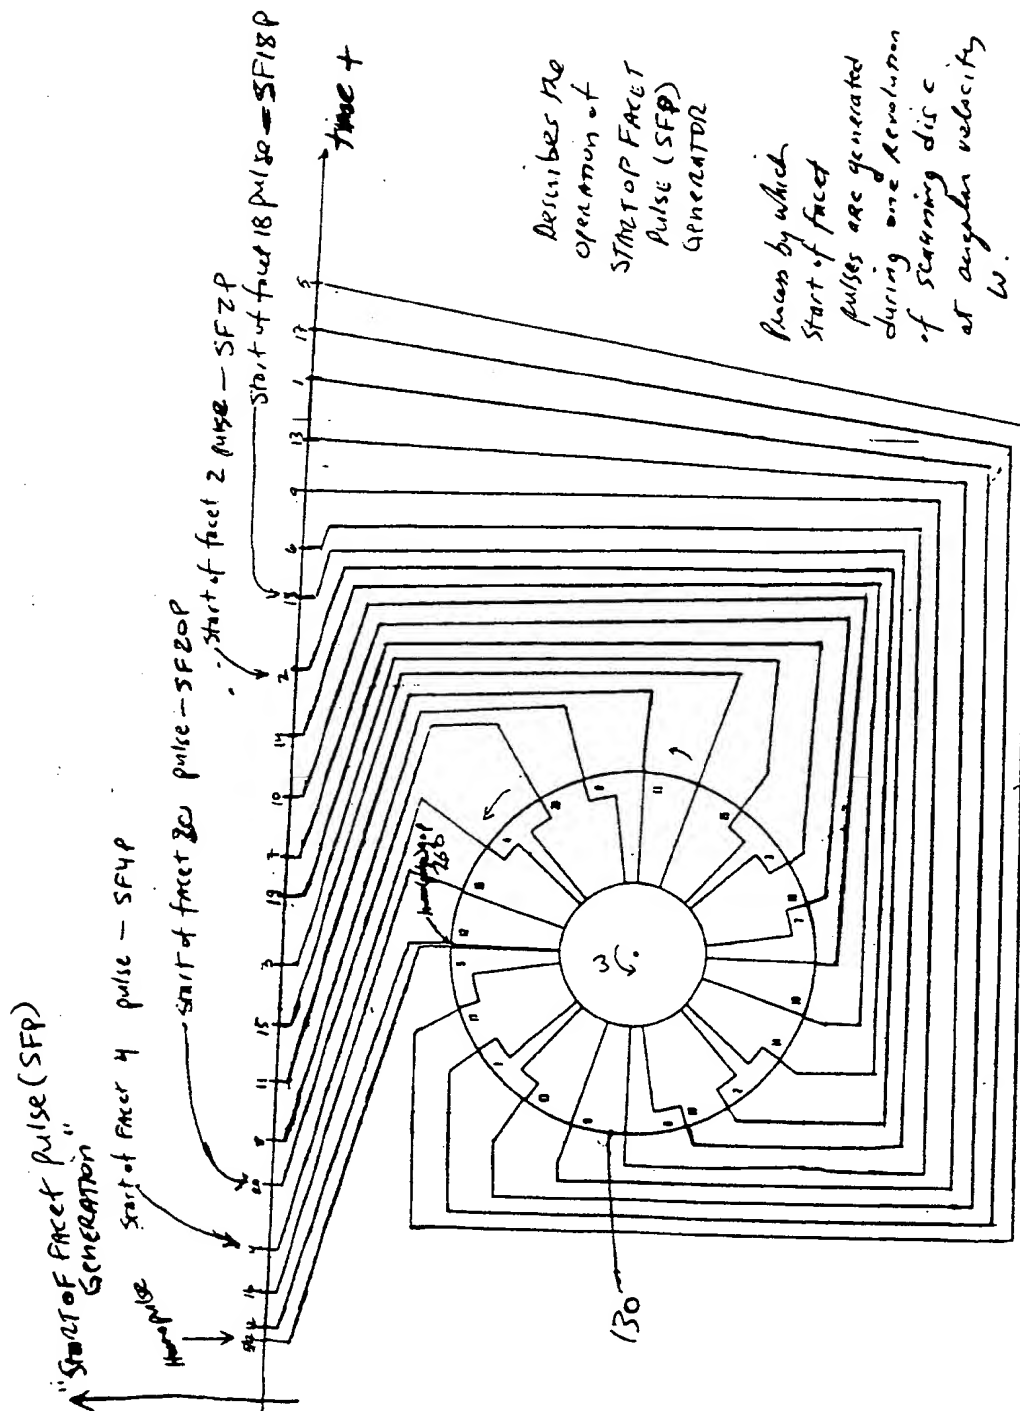 "START OF FACET pulse (SFP)
GENERATION"
Home pulse
Start of FACET 4 pulse — SF4P
Start of facet 20 pulse — SF20P
Start of facet 2 pulse — SF2P
Start of facet 18 pulse — SF18P
time t
12
16
4
20
8
11
15
3
19
7
10
14
2
18
6
9
13
1
17
5
Describes the
operation of
START OF FACET
Pulse (SFP)
GENERATOR
Process by which
Start of facet
pulses are generated
during one revolution
of scanning disc
at angular velocity
ω.
5
12
16
4
20
8
11
15
3
19
7
10
14
2
18
6
9
13
1
17
ω
130